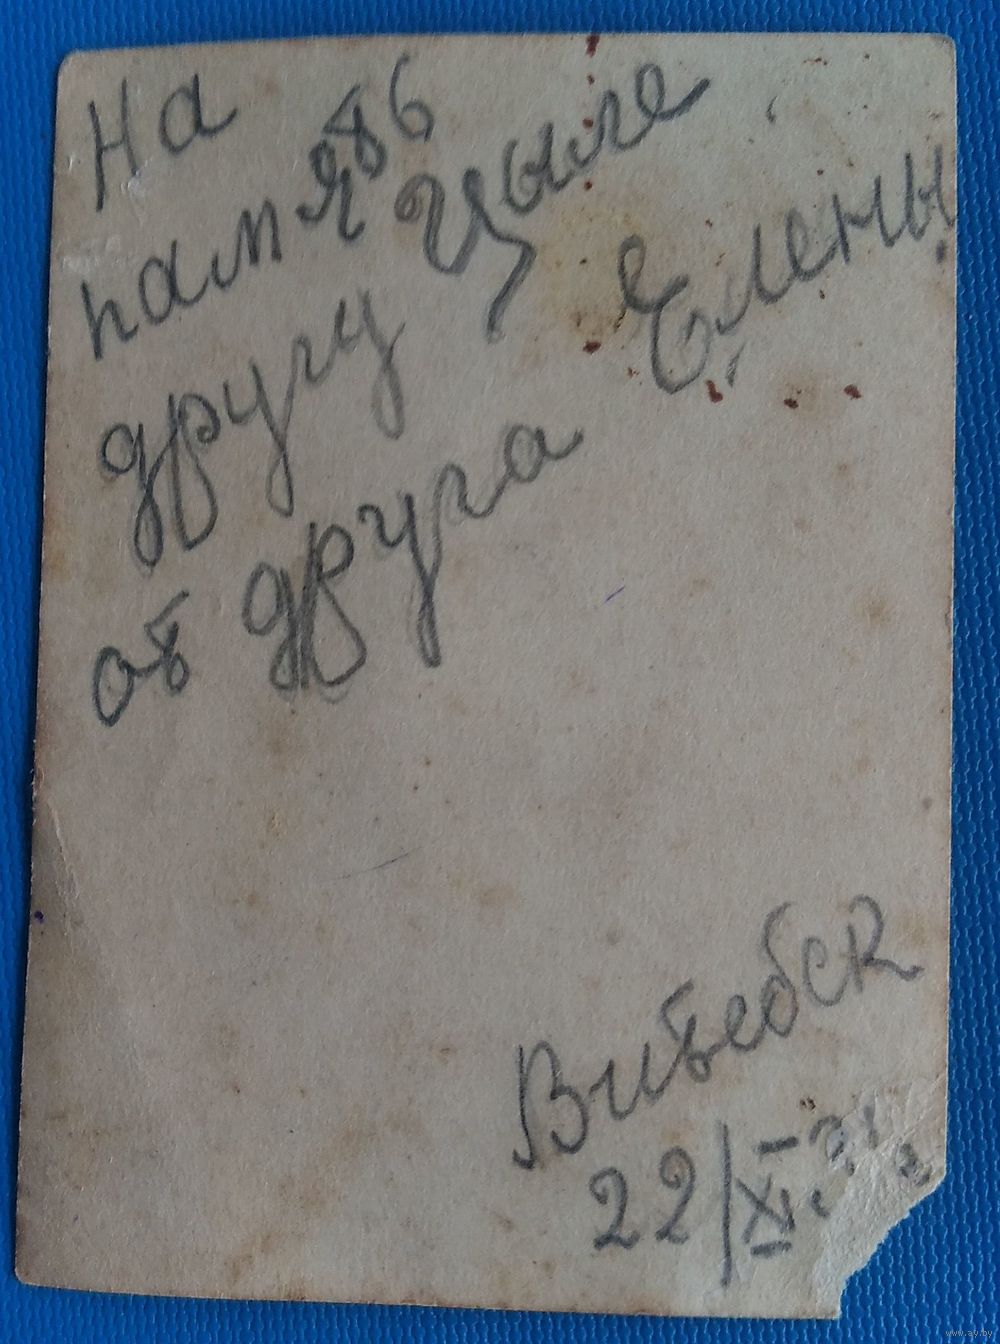 На
память
другу Цыле
от друга Елены
Витебск
22/XI
www.ay.by